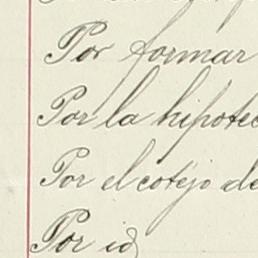 Por formar
Por la hipotec
Por el cotejo de
Por id